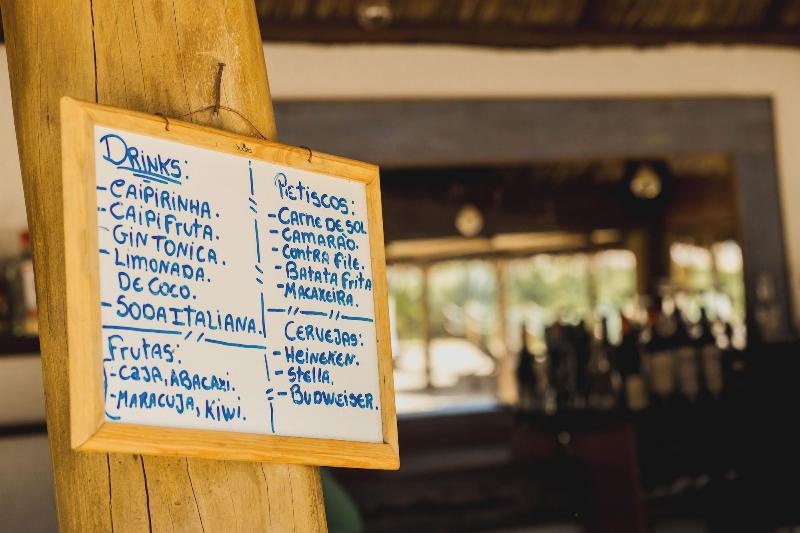 DRINKS:
- CAIPIRINHA.
- CAIPIFRUTA.
- GIN TONICA.
- LIMONADA.
DE COCO.
- SODA ITALIANA.
FRUTAS:
- CAJA, ABACAXI.
- MARACUJA, KIWI.
PETISCOS:
- CARNE DE SOL
- CAMARÃO.
- CONTRA FILE.
- BATATA FRITA
- MACAXEIRA.
CERVEJAS:
- HEINEKEN.
- STELLA.
- BUDWEISER.